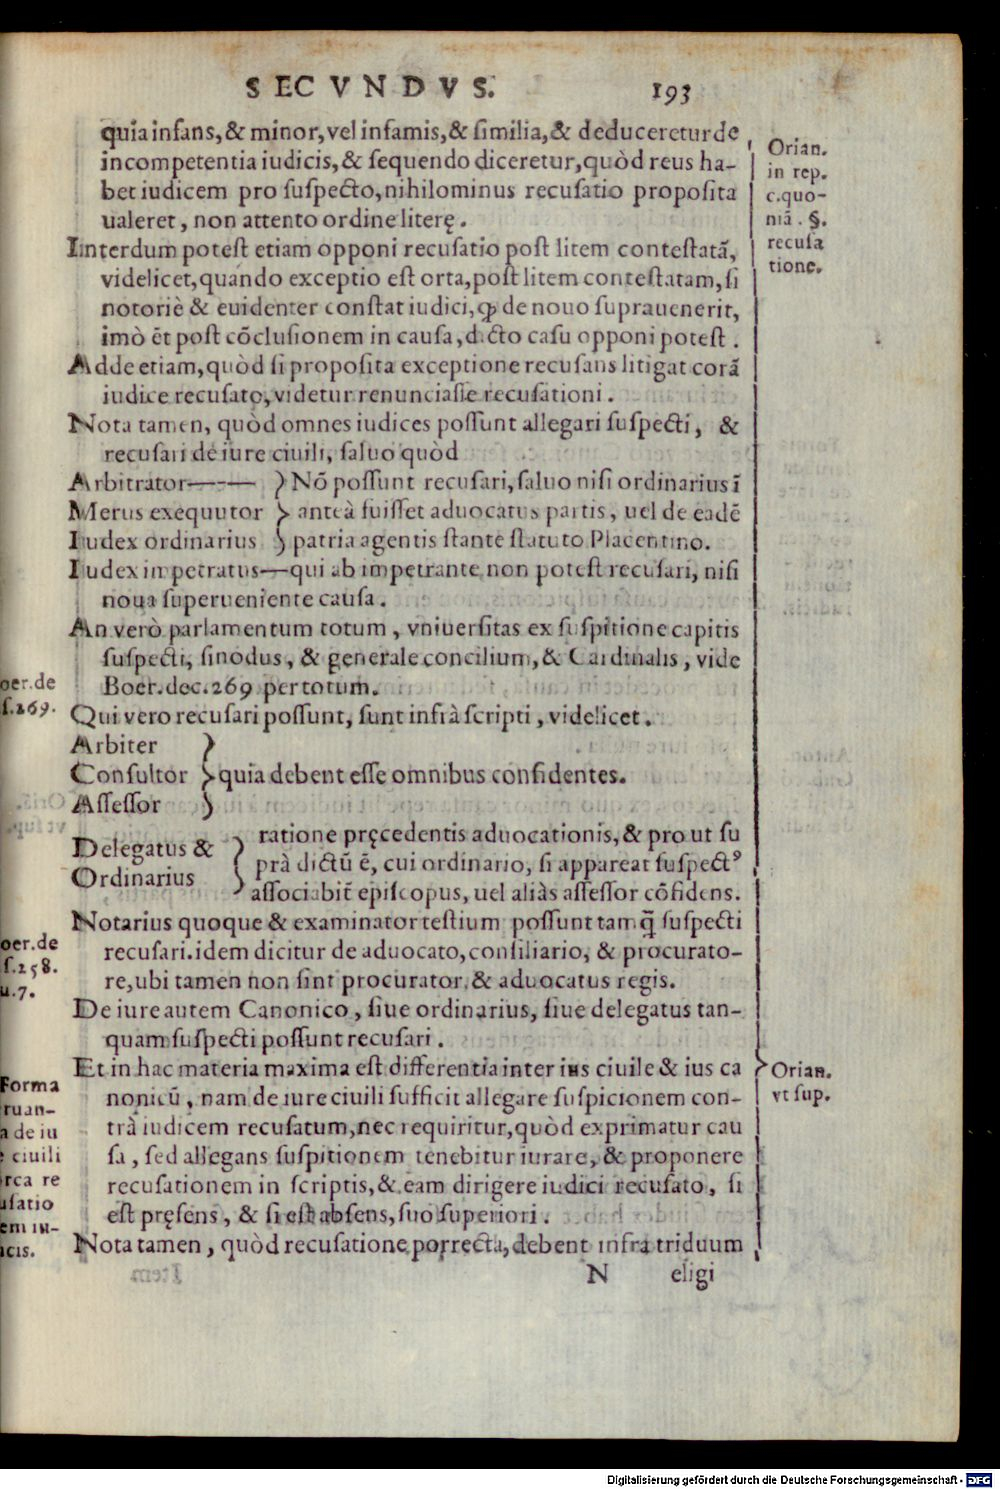 SECVNDVS. 193
quia infans, & minor, vel infamis, & similia, & deduceretur de
incompetentia iudicis, & sequendo diceretur, quòd reus ha-
bet iudicem pro suspecto, nihilominus recusatio proposita
ualeret, non attento ordine literę.
Orian.
in rep.
c. quo-
niã. §.
recusa
tione.
Interdum potest etiam opponi recusatio post litem contestatã,
videlicet, quando exceptio est orta, post litem contestatam, si
notoriè & euidenter constat iudici, ꝙ de nouo suprauenerit,
imò ẽt post cõclusionem in causa, dicto casu opponi potest.
Adde etiam, quòd si proposita exceptione recusans litigat corã
iudice recusato, videtur renunciasse recusationi.
Nota tamen, quòd omnes iudices possunt allegari suspecti, &
recusari de iure ciuili, saluo quòd
Arbitrator——— } Nõ possunt recusari, saluo nisi ordinarius ĩ
Merus exequutor } anteà fuisset aduocatus partis, uel de eadẽ
Iudex ordinarius } patria agentis stante statuto Placentino.
Iudex impetratus—qui ab impetrante non potest recusari, nisi
noua superueniente causa.
An verò parlamentum totum, vniuersitas ex suspitione capitis
suspecti, sinodus, & generale concilium, & Cardinalis, vide
Boer. dec. 269 per totum.
oer. de
s. 269.
Qui vero recusari possunt, sunt infrà scripti, videlicet.
Arbiter }
Consultor } quia debent esse omnibus confidentes.
Assessor }
Delegatus & } ratione pręcedentis aduocationis, & pro ut su
Ordinarius } prà dictũ ẽ, cui ordinario, si appareat suspectꝰ
associabit̃ episcopus, uel aliàs assessor cõfidens.
Notarius quoque & examinator testium possunt tamq̃ suspecti
recusari. idem dicitur de aduocato, consiliario, & procurato-
re, ubi tamen non sint procurator, & aduocatus regis.
oer. de
s. 258.
u. 7.
De iure autem Canonico, siue ordinarius, siue delegatus tan-
quam suspecti possunt recusari.
Et in hac materia maxima est differentia inter ius ciuile & ius ca
nonicũ, nam de iure ciuili sufficit allegare suspicionem con-
trà iudicem recusatum, nec requiritur, quòd exprimatur cau
sa, sed allegans suspitionem tenebitur iurare, & proponere
recusationem in scriptis, & eam dirigere iudici recusato, si
est pręsens, & si est absens, suo superiori.
Orian.
vt sup.
Forma
ruan-
a de iu
e ciuili
rca re
usatio
em iu-
icis.
Nota tamen, quòd recusatione porrecta, debent infra triduum
N eligi
Digitalisierung gefördert durch die Deutsche Forschungsgemeinschaft - DFG